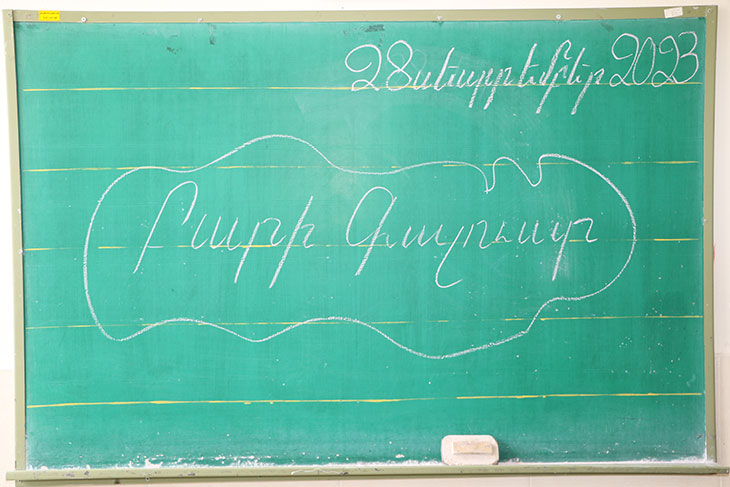 28 սեպտեմբեր 2023
Բարի Գալուստ